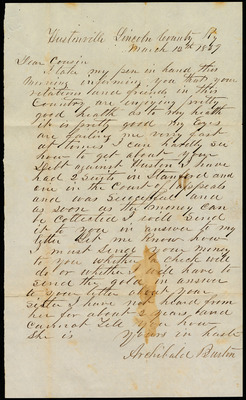 Hustonville Lincoln County Ky
March 12th 1857
Dear Cousin
I take my pen in hand this
morning informing you that your
relations and friends in this
Country are enjoying pretty
good health as to my health
it is pretty good My Eyes
are failing me very fast
at times I can hardly see
how to get about your
Debt against Huston I have
had 2 suits in Stanford and
one in the Court of Appeals
and was successful and
as soon as the money can
be collected I will send
it to you in answer to my
letter let me know how
I must send your money
to you whether a check will
do or whether I will have to
send the gold in answer
to your letter about your
sister I have not heard from
her for about 2 years and
cannot tell you how
she is Yours in haste
Archibald Burton